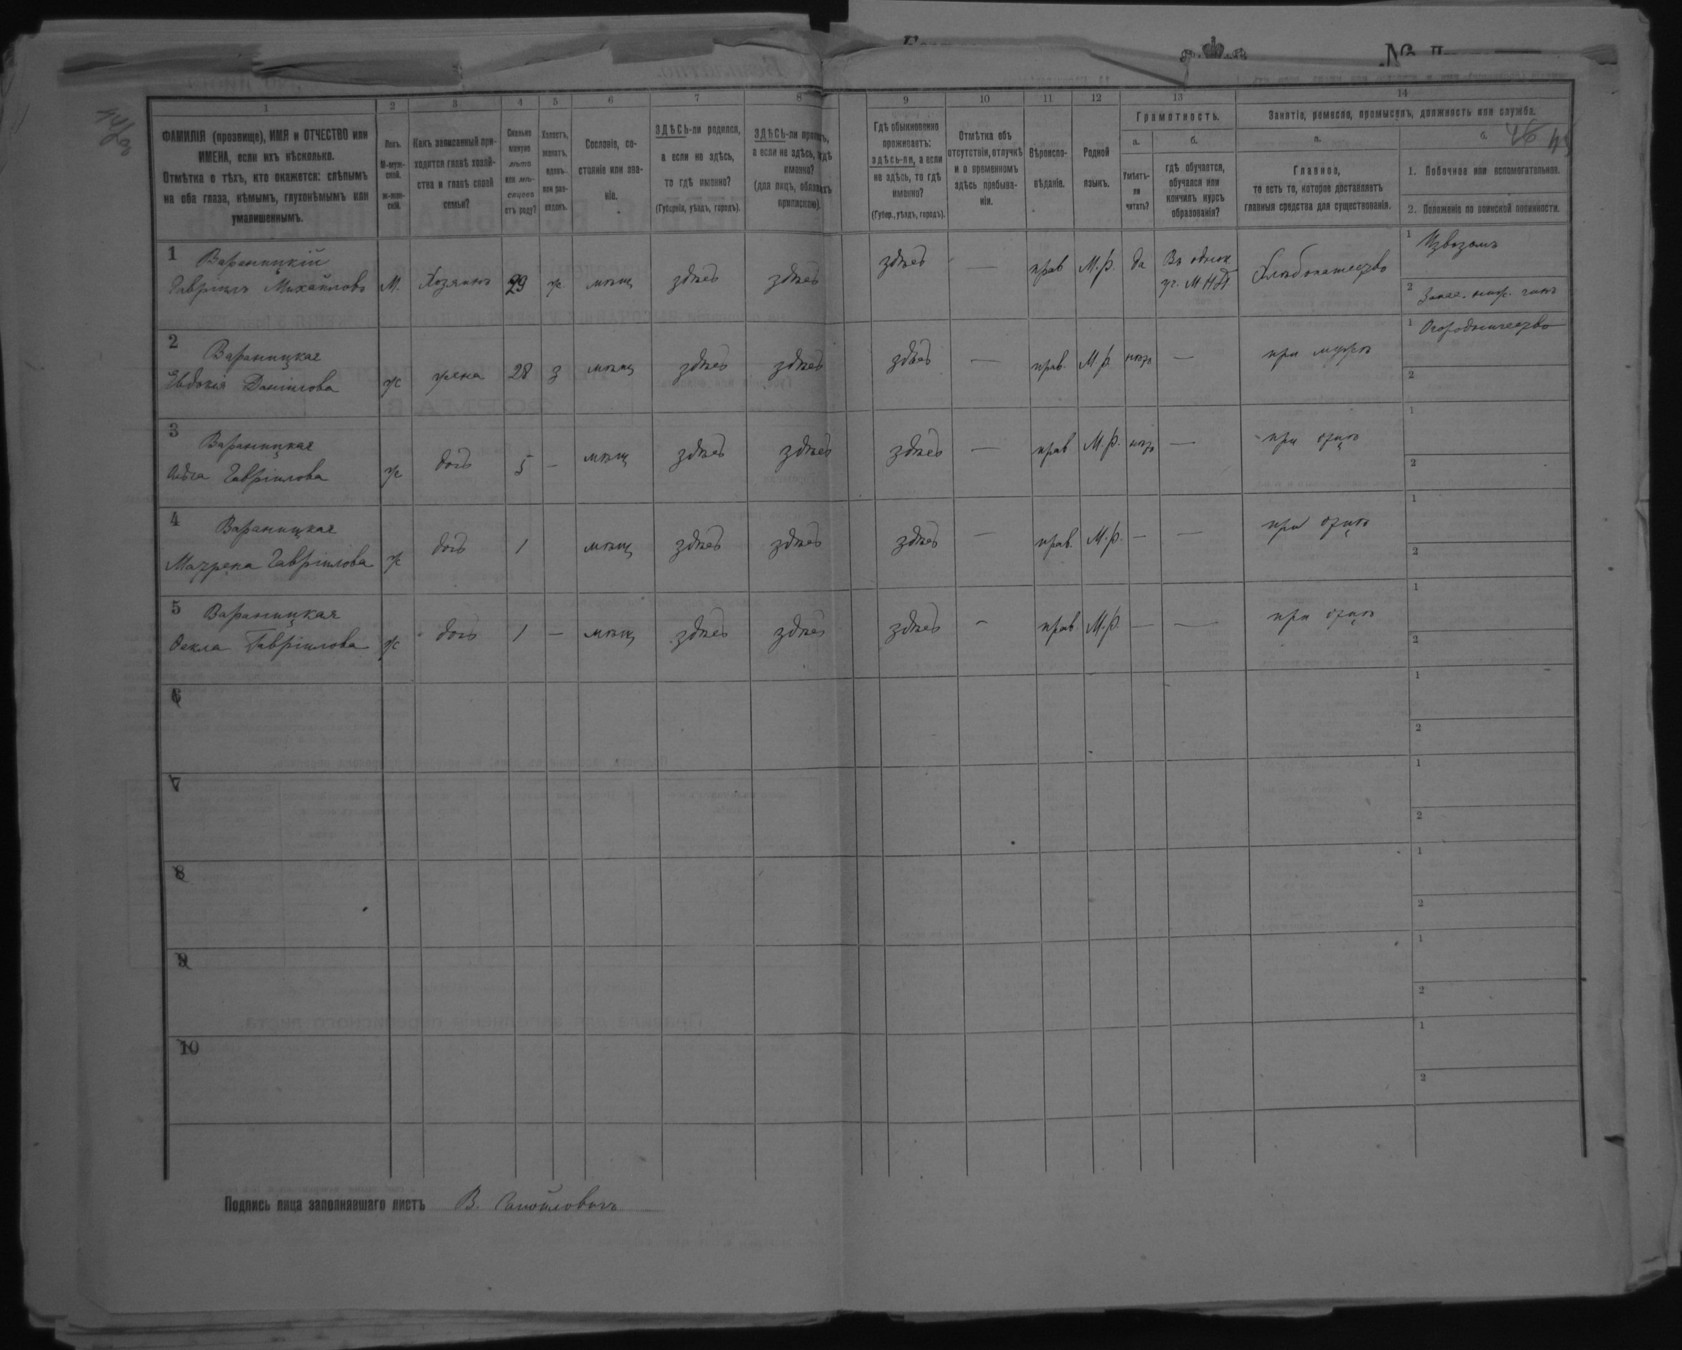 №
1 2 3 4 5 6 7 8 9 10 11 12 13 14
ФАМИЛІЯ (прозвище), ИМЯ и ОТЧЕСТВО или
ИМЕНА, если ихъ нѣсколько.
Отмѣтка о тѣхъ, кто окажется: слѣпымъ
на оба глаза, нѣмымъ, глухонѣмымъ или
умалишеннымъ.
Полъ.
М-муж-
ской.
ж-жен-
скій.
Какъ записанный при-
ходится главѣ хозяй-
ства и главѣ своей
семьи?
Сколько
минуло
лѣтъ
или мѣ-
сяцевъ
отъ роду?
Холостъ,
женатъ,
вдовъ
или раз-
веденъ.
Сословіе, со-
стояніе или зва-
ніе.
ЗДѢСЬ-ли родился,
а если не здѣсь,
то гдѣ именно?
(Губернія, уѣздъ, городъ).
ЗДѢСЬ-ли
а если не здѣсь,
именно?
(для лицъ,
Гдѣ обыкновенно
проживаетъ:
здѣсь-ли, а если
не здѣсь, то гдѣ
именно?
(Губер., уѣздъ, городъ).
Отмѣтка объ
отсутствіи, отлучкѣ
и о временномъ
здѣсь пребыва-
ніи.
Вѣроиспо-
вѣданіе.
Родной
языкъ.
Грамотность.
а.
Умѣетъ-
ли
читать?
б.
гдѣ обучается,
обучался или
кончилъ курсъ
образованія?
Занятіе, ремесло, промыселъ, должность или служба.
а.
Главное,
то есть то, которое доставляетъ
главныя средства для существованія.
б.
1. Побочное или вспомогательное.
2. Положеніе по воинской повинности.
1 Вараницкій
Гавріилъ Михайловъ М. Хозяинъ 29 ж мѣщ здѣсь здѣсь здѣсь — прав М.р. да Въ однок
уч. МНП Хлѣбопашество 1 Извозомъ
2 Запас. ниж. чинъ
2 Вараницкая
Евдокія Данілова ж жена 28 з мѣщ здѣсь здѣсь здѣсь — прав. М.р. нѣтъ — при мужѣ 1 Огородничество
2
3 Вараницкая
Гавріилова ж дочь 5 — мѣщ здѣсь здѣсь здѣсь — прав М.р. нѣтъ — при отцѣ 1
2
4 Вараницкая
Матрена Гавріилова ж дочь 1 мѣщ здѣсь здѣсь здѣсь — прав. М.р. — — при отцѣ 1
2
5 Вараницкая
Фекла Гавріилова ж дочь 1 — мѣщ здѣсь здѣсь здѣсь — прав М.р — — при отцѣ 1
2
6 1
2
7 1
2
8 1
2
9 1
2
10 1
2
Подпись лица заполнявшаго листъ В.